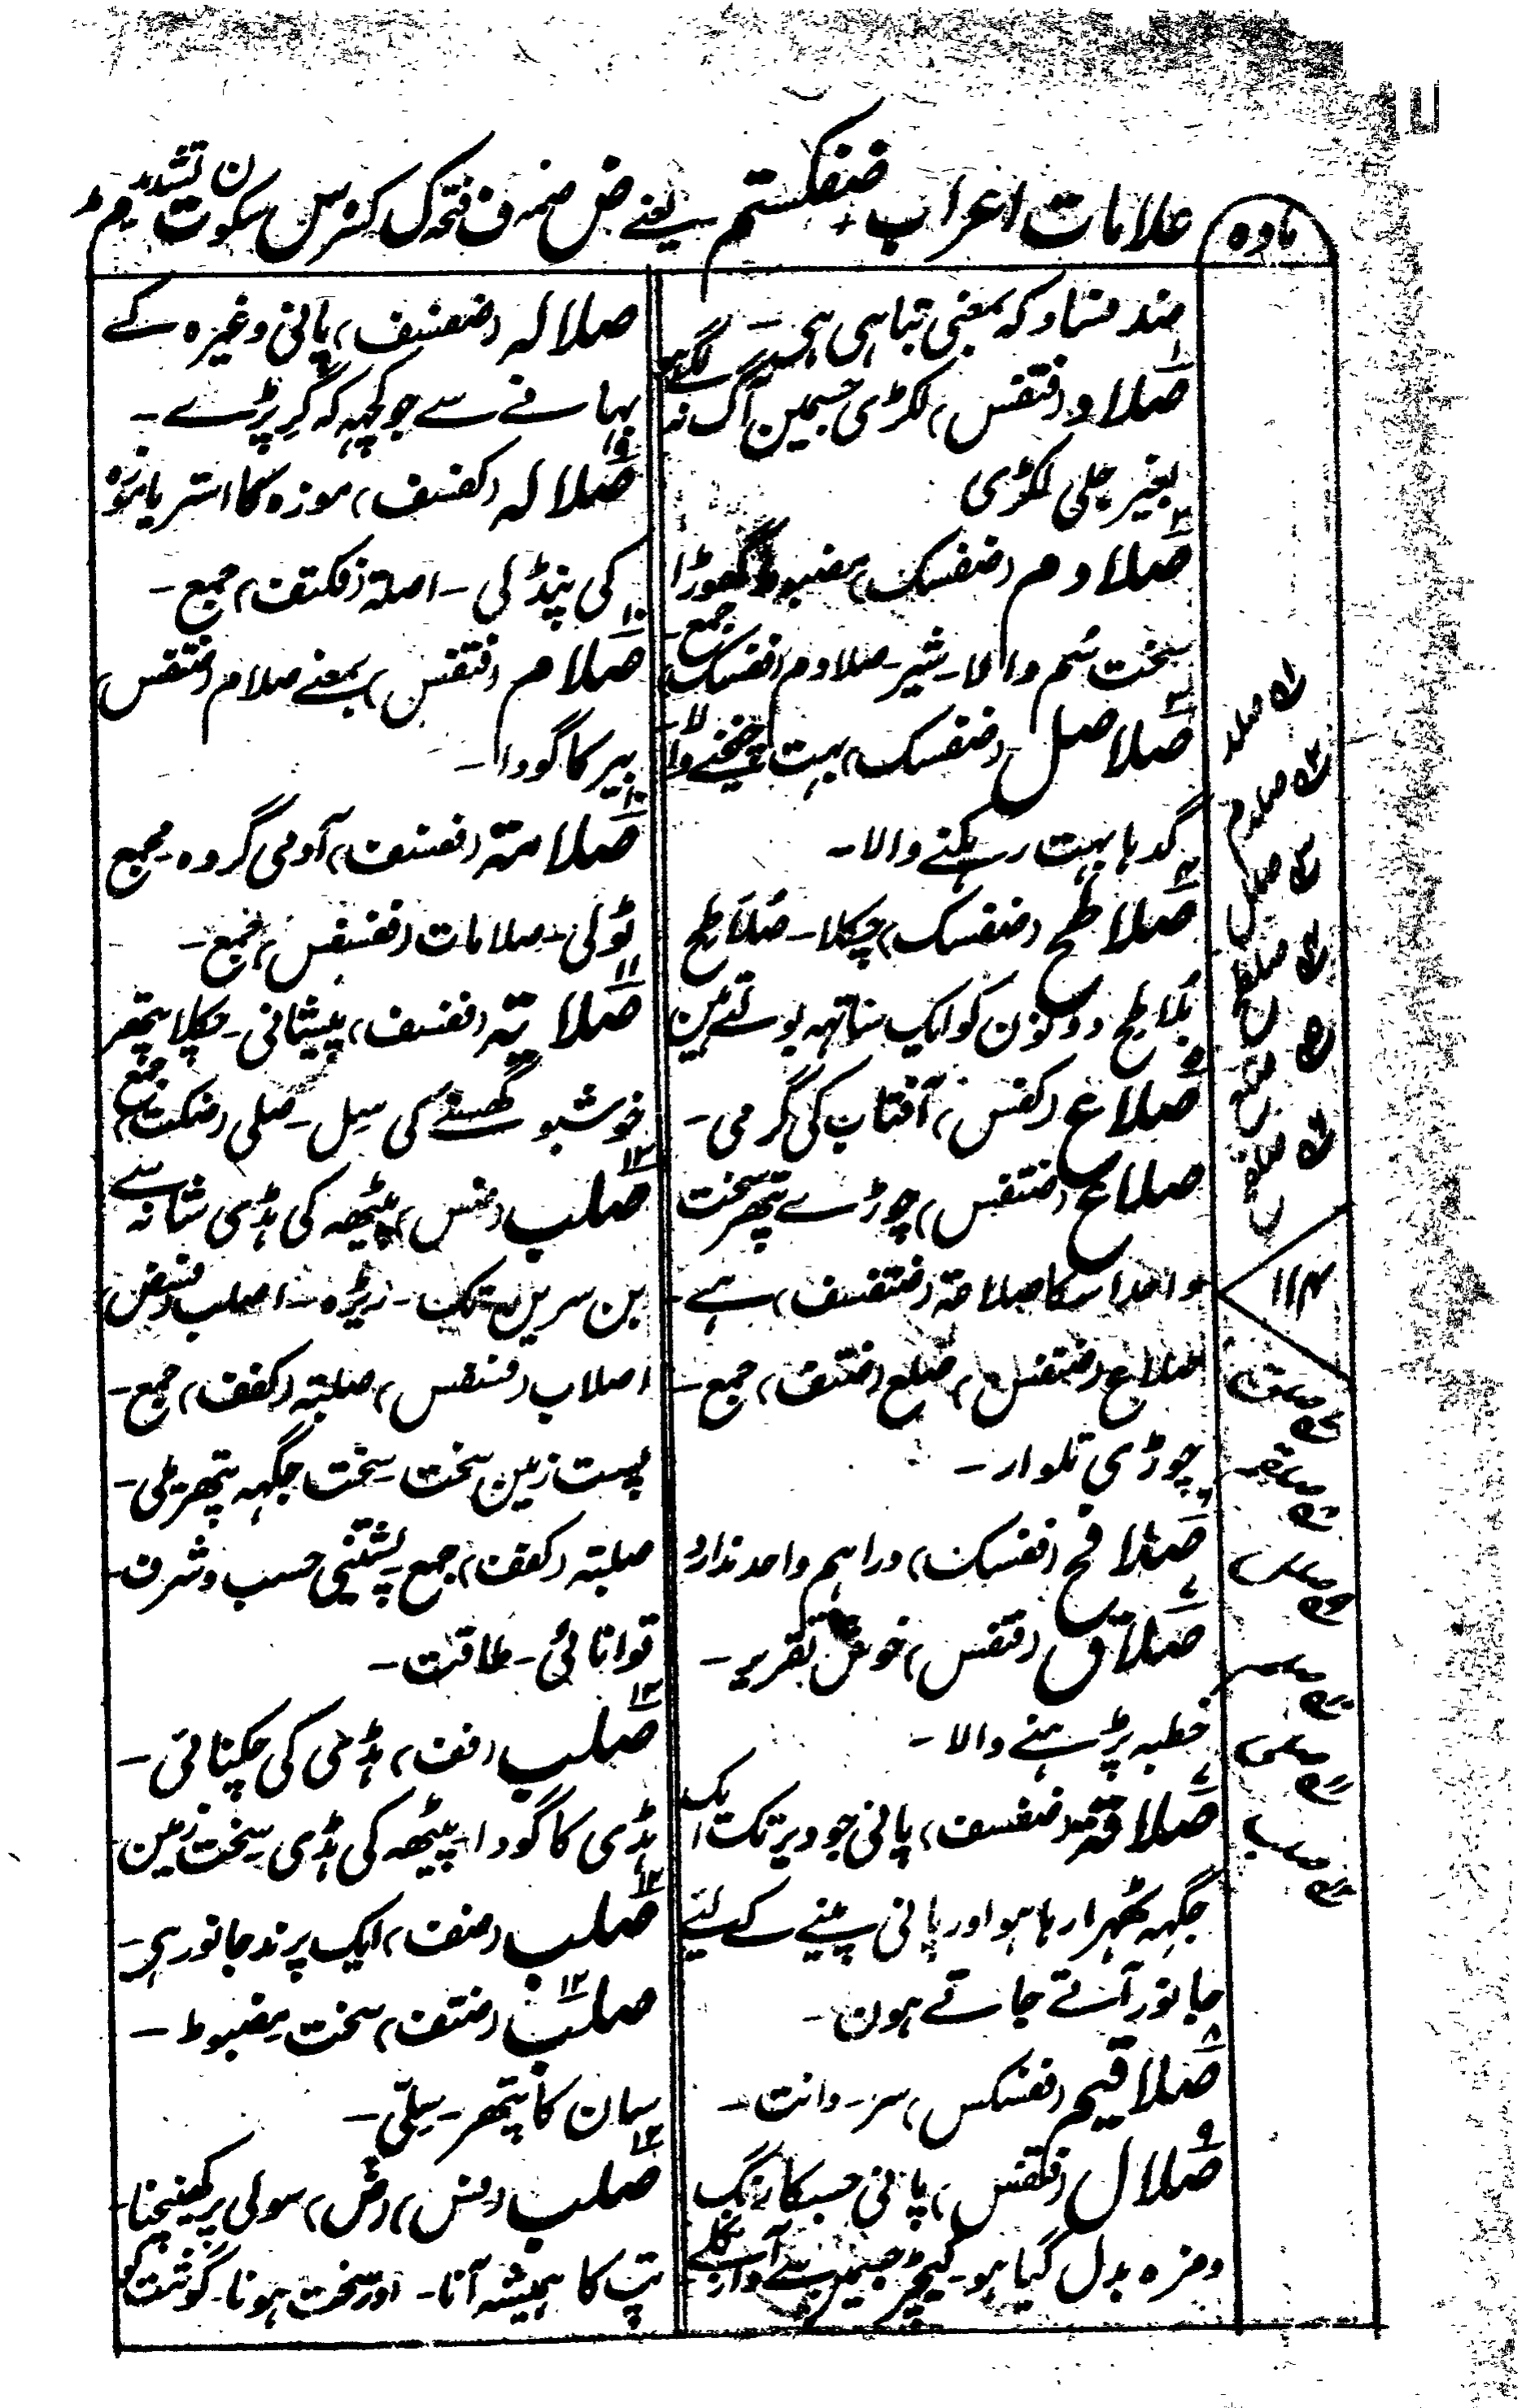 مادہ
علامات اعراب ضفکستم یعنے ض ضمہ ف فتحہ ک کسرہ س سکون ت تشدید م مد
ضد فساد کہ بمعنی تباہی ہی۔
صلاد (فتفس) لکڑی جسمین آگ نہ لگے
بغیر جلی لکڑی
صلادم (ضفسک) مضبوط گھوڑا
سخت سُم والا۔ شیر۔ صلادم (ففسک) جمع۔
صلاصل (ضفسک) بہت چیخنے والا۔
گدہا بہت رینکنے والا۔
صلاطح (ضفسک) چکلا۔ صُلَاطِح
بُلَاطِح دونون کو ایک ساتہہ بولتے ہین
صلاع (کفس) آفتاب کی گرمی۔
صلاع (ضتفس) چوڑے پتھر سخت
واحد اسکا صلاعة (ضتفسف) ہے۔
صلاع (ضتفس) صلع (ضتف) جمع۔
چوڑی تلوار۔
صلافح (ففسک) دراہم واحد ندارد
صلاق (فتفس) خوش تقریر۔
خطبہ پڑہنے والا۔
صلاقة (ضفسف) پانی جو دیر تک ایک
جگہہ ٹھہرا رہا ہو اور پانی پینے کے لئے
جانور آتے جاتے ہون۔
صلاقیم (ففسکس) سر۔ دانت۔
صلال (فتفس) پانی جسکا رنگ
و مزہ بدل گیا ہو۔ کیچڑ جسمین سے آواز نکلے
صلالہ (ضفسف) پانی وغیرہ کے
بہانے سے جو کچہہ کہ گر پڑے۔
صلالہ (کفسف) موزہ کا استر یا موزہ
کی پنڈلی۔ اصلة (فکتف) جمع۔
صلام (فتفس) بمعنے صلام (ضتفس)
بیر کا گودا۔
صلامتہ (ففسف) آدمی گروہ۔ مجمع
ٹولی۔ صلامات (ففسفس) جمع۔
صلایتہ (ففسف) پیشانی۔ چکلا پتھر
خوشبو گھسنے کی سِل۔ صلی (ضکت) جمع
صلب (ضس) پیٹھہ کی ہڈی شانہ سے
بن سرین تک۔ ریڑہ۔ اصلب (فسض)
اصلاب (فسفس) صلبتہ (کفف) جمع۔
پست زمین سخت۔ سخت جگہہ پتھریلی۔
صلبتہ (کفف) جمع۔ پشتنی حسب و شرف
توانائی۔ طاقت۔
صلب (فف) ہڈی کی چکنائی۔
ہڈی کا گودا۔ پیٹھہ کی ہڈی۔ سخت زمین
صلب (ضف) ایک پرند جانور ہی۔
صلب (ضتف) سخت۔ مضبوط۔
سان کا پتھر۔ سِلّی۔
صلب (فس) (ض) سولی پر کھینچنا۔
تپ کا ہمیشہ آنا۔ اور سخت ہونا۔ گوشت کو
صلد
صلدم
صلصل
صلطح
صلع
صلفح
۱۱۴
صلق
صلقم
صلل
صلم
صلی
صلب